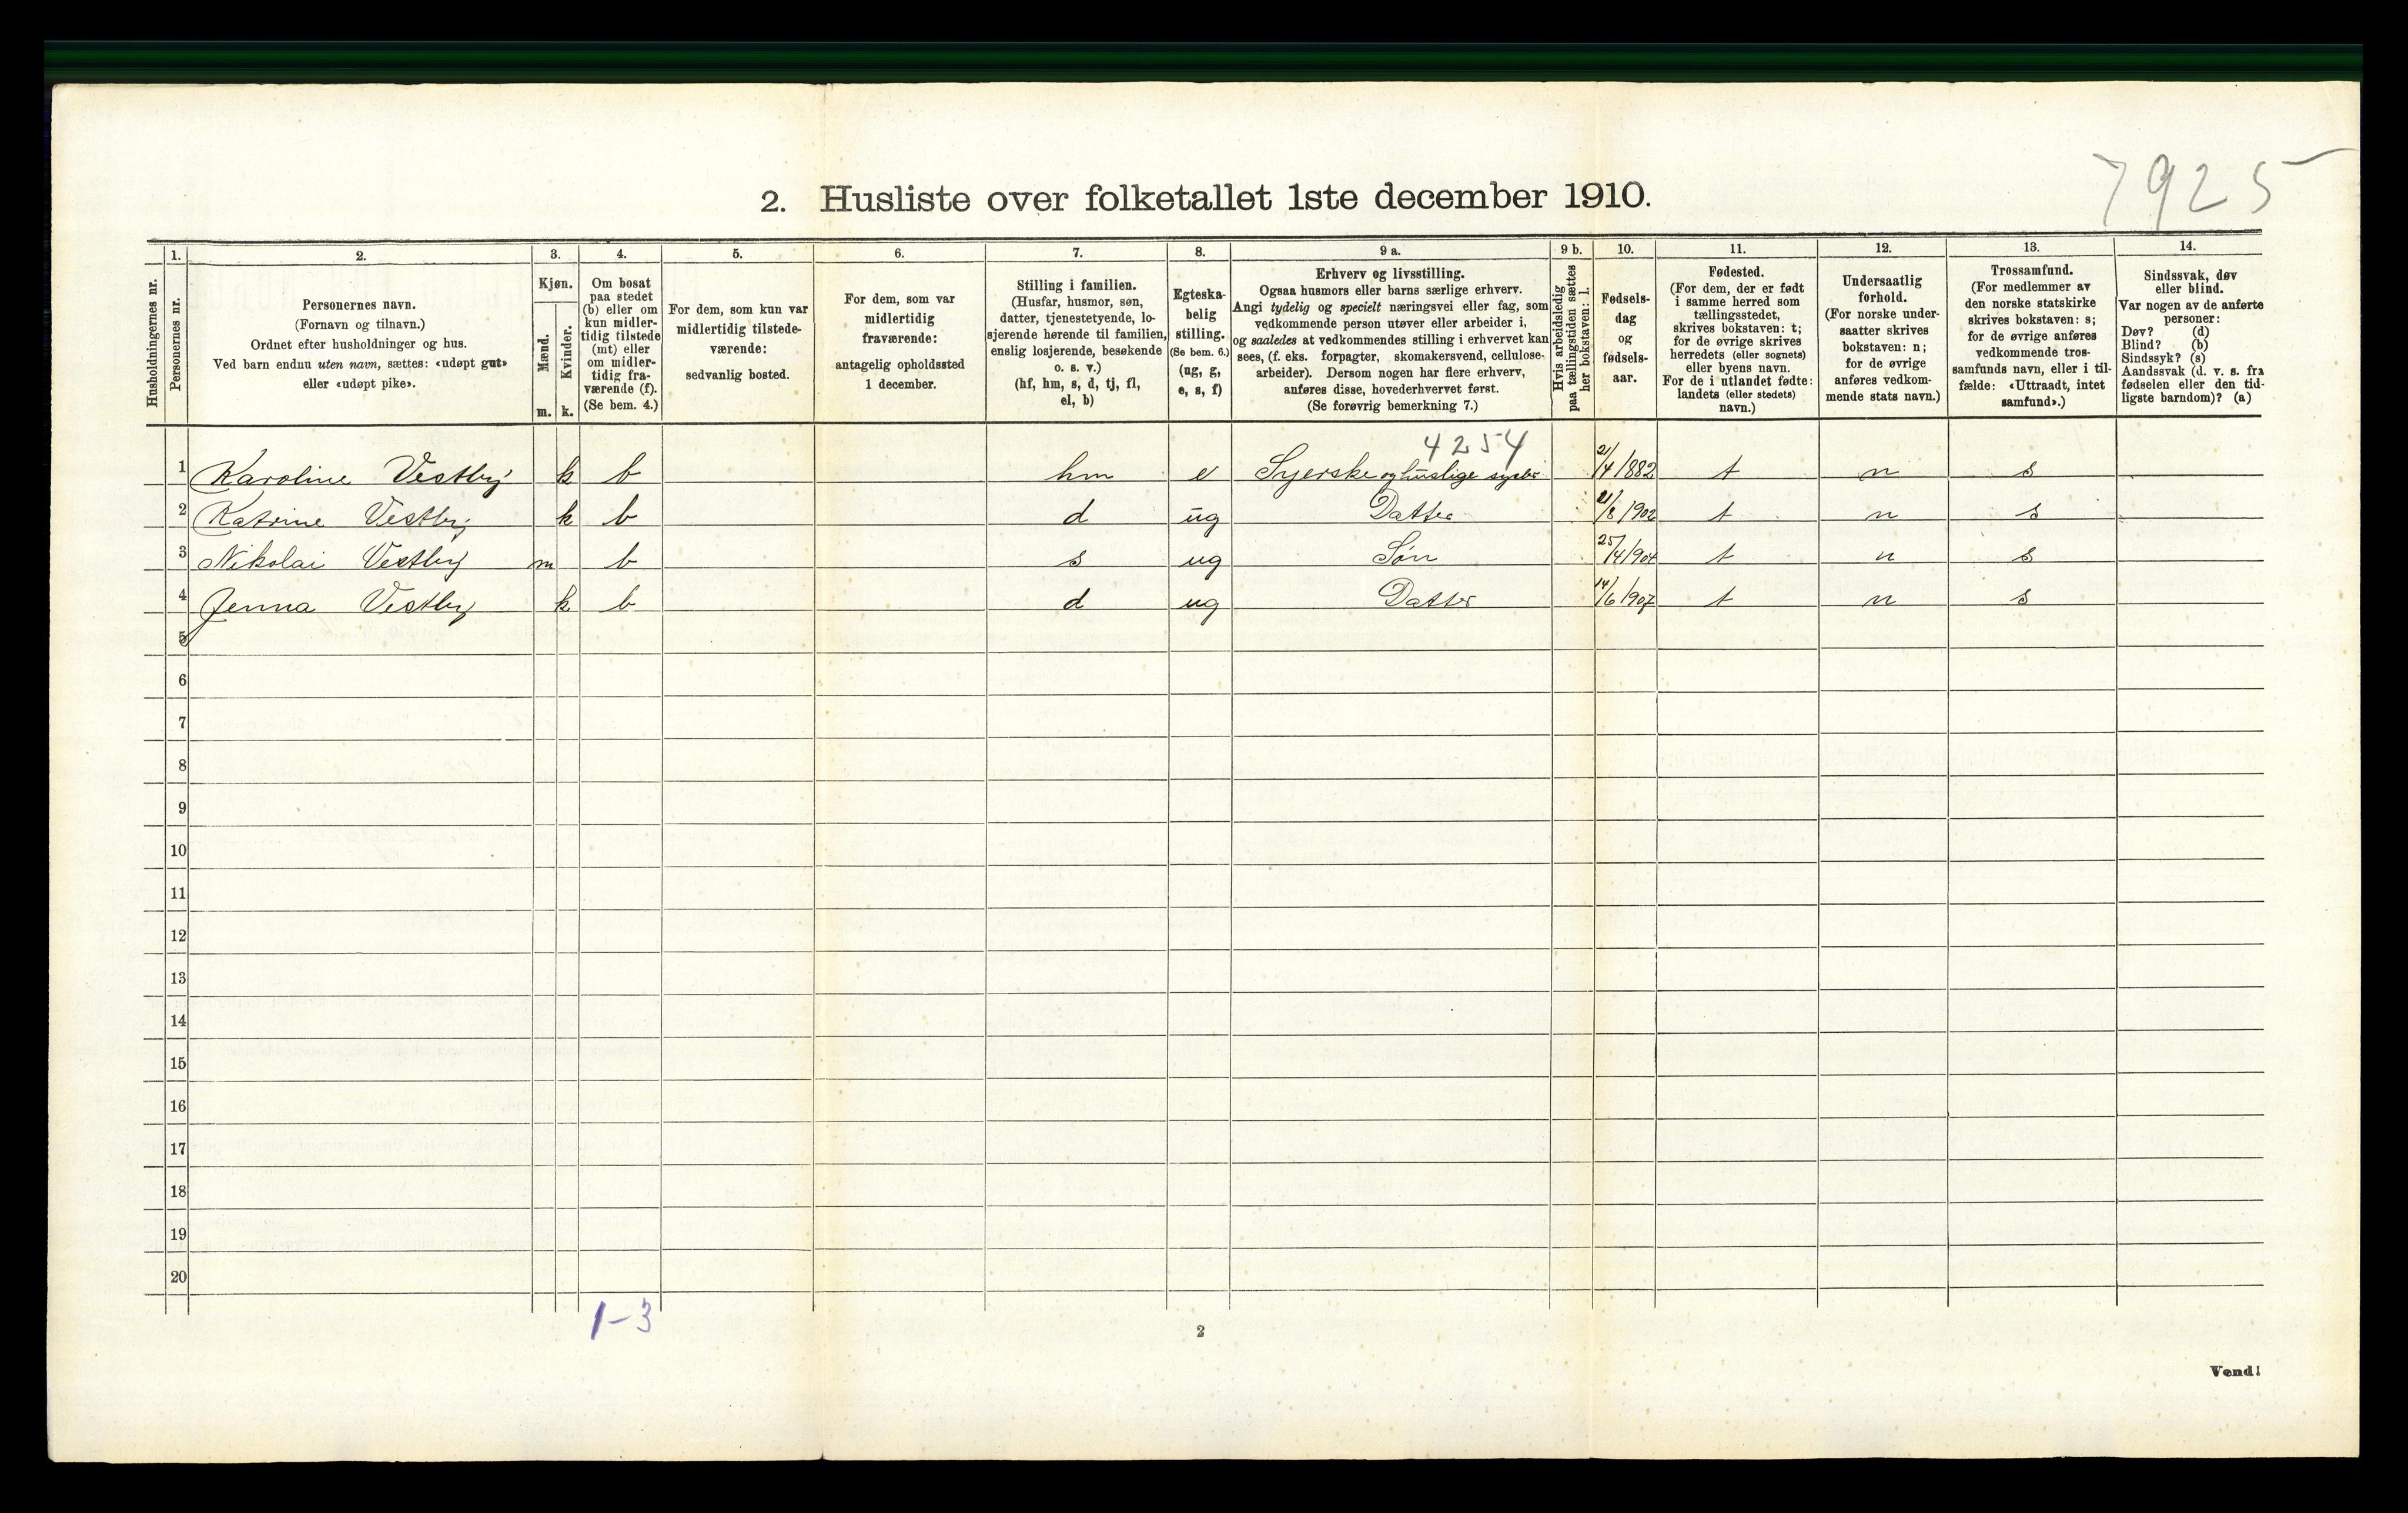 7925
2. Husliste over folketallet 1ste december 1910.
Husholdningernes nr.
1.
Personernes nr.
2.
Personernes navn.
(Fornavn og tilnavn.)
Ordnet efter husholdninger og hus.
Ved barn endnu uten navn, sættes: «udøpt gut»
eller «udøpt pike».
3.
Kjøn.
Mænd.
m.
Kvinder.
k.
4.
Om bosat
paa stedet
(b) eller om
kun midler-
tidig tilstede
(mt) eller
om midler-
tidig fra-
værende (f).
(Se bem. 4.)
5.
For dem, som kun var
midlertidig tilstede-
værende:
sedvanlig bosted.
6.
For dem, som var
midlertidig
fraværende:
antagelig opholdssted
1 december.
7.
Stilling i familien.
(Husfar, husmor, søn,
datter, tjenestetyende, lo-
sjerende hørende til familien,
enslig losjerende, besøkende
o. s. v.)
(hf, hm, s, d, tj, fl,
el, b)
8.
Egteska-
belig
stilling.
(Se bem. 6.)
(ug, g,
e, s, f)
9 a.
Erhverv og livsstilling.
Ogsaa husmors eller barns særlige erhverv.
Angi tydelig og specielt næringsvei eller fag, som
vedkommende person utøver eller arbeider i,
og saaledes at vedkommendes stilling i erhvervet kan
sees, (f. eks. forpagter, skomakersvend, cellulose-
arbeider). Dersom nogen har flere erhverv,
anføres disse, hovederhvervet først.
(Se forøvrig bemerkning 7.)
9 b.
Hvis arbeidsledig
paa tællingstiden sættes
her bokstaven: l.
10.
Fødsels-
dag
og
fødsels-
aar.
11.
Fødested.
(For dem, der er født
i samme herred som
tællingsstedet,
skrives bokstaven: t;
for de øvrige skrives
herredets (eller sognets)
eller byens navn.
For de i utlandet fødte:
landets (eller stedets)
navn.)
12.
Undersaatlig
forhold.
(For norske under-
saatter skrives
bokstaven: n;
for de øvrige
anføres vedkom-
mende stats navn.)
13.
Trossamfund.
(For medlemmer av
den norske statskirke
skrives bokstaven: s;
for de øvrige anføres
vedkommende tros-
samfunds navn, eller i til-
fælde: «Uttraadt, intet
samfund».)
14.
Sindssvak, døv
eller blind.
Var nogen av de anførte
personer:
Døv? (d)
Blind? (b)
Sindssyk? (s)
Aandssvak (d. v. s. fra
fødselen eller den tid-
ligste barndom)? (a)
4254
1 Karoline Vestby k b hm e Syerske og huslige 21/4 1882 t n s
2 Katrine Vestby k b d ug Datter /8 1902 t n s
3 Nikolai Vestby m b s ug Søn 25/4 1904 t n s
4 Jenna Vestby k b d ug Datter 14/6 1907 t n s
5
6
7
8
9
10
11
12
13
14
15
16
17
18
19
20
1-3
2
Vend!